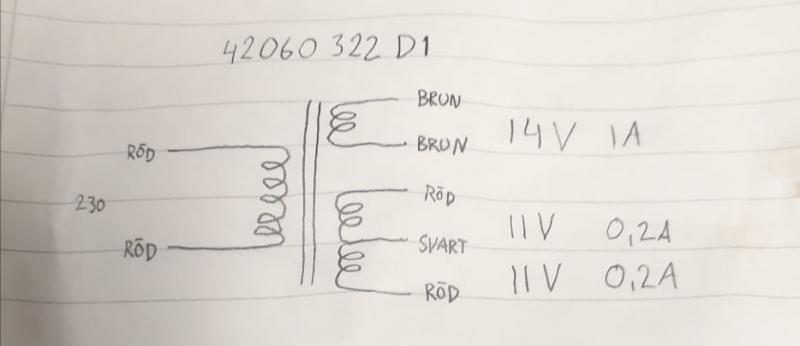 42060 322 D1
BRUN
RÖD BRUN 14V 1A
230 RÖD
RÖD SVART 11V 0,2A
RÖD 11V 0,2A